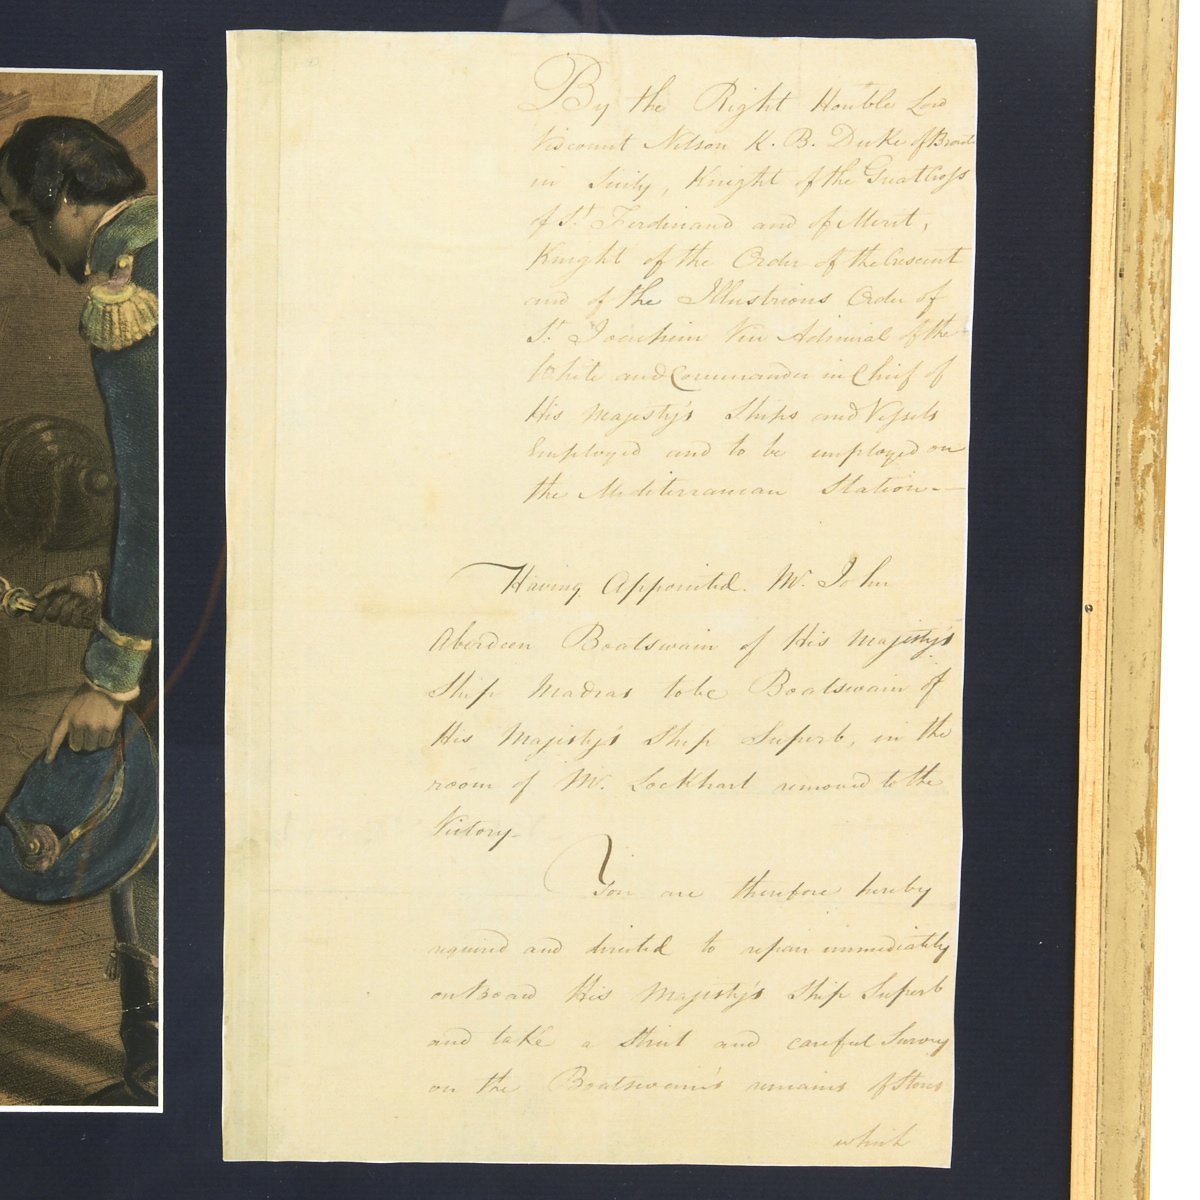 By the Right Honble Lord
Viscount Nelson K. B. Duke of Bronte
in Sicily, Knight of the Great Cross
of St. Ferdinand and of Merit,
Knight of the Order of the Crescent
and of the Illustrious Order of
St. Joachim Vice Admiral of the
White and Commander in Chief of
His Majesty's Ships and Vessels
Employed and to be employed on
the Mediterranean Station—
Having Appointed Mr. John
Aberdeen Boatswain of His Majesty's
Ship Madras to be Boatswain of
His Majesty's Ship Superb, in the
room of Mr. Lockhart removed to the
Victory—
You are therefore hereby
required and directed to repair immediately
on Board His Majesty's Ship Superb
and take a Strict and careful Survey
on the Boatswain's remains of Stores
which